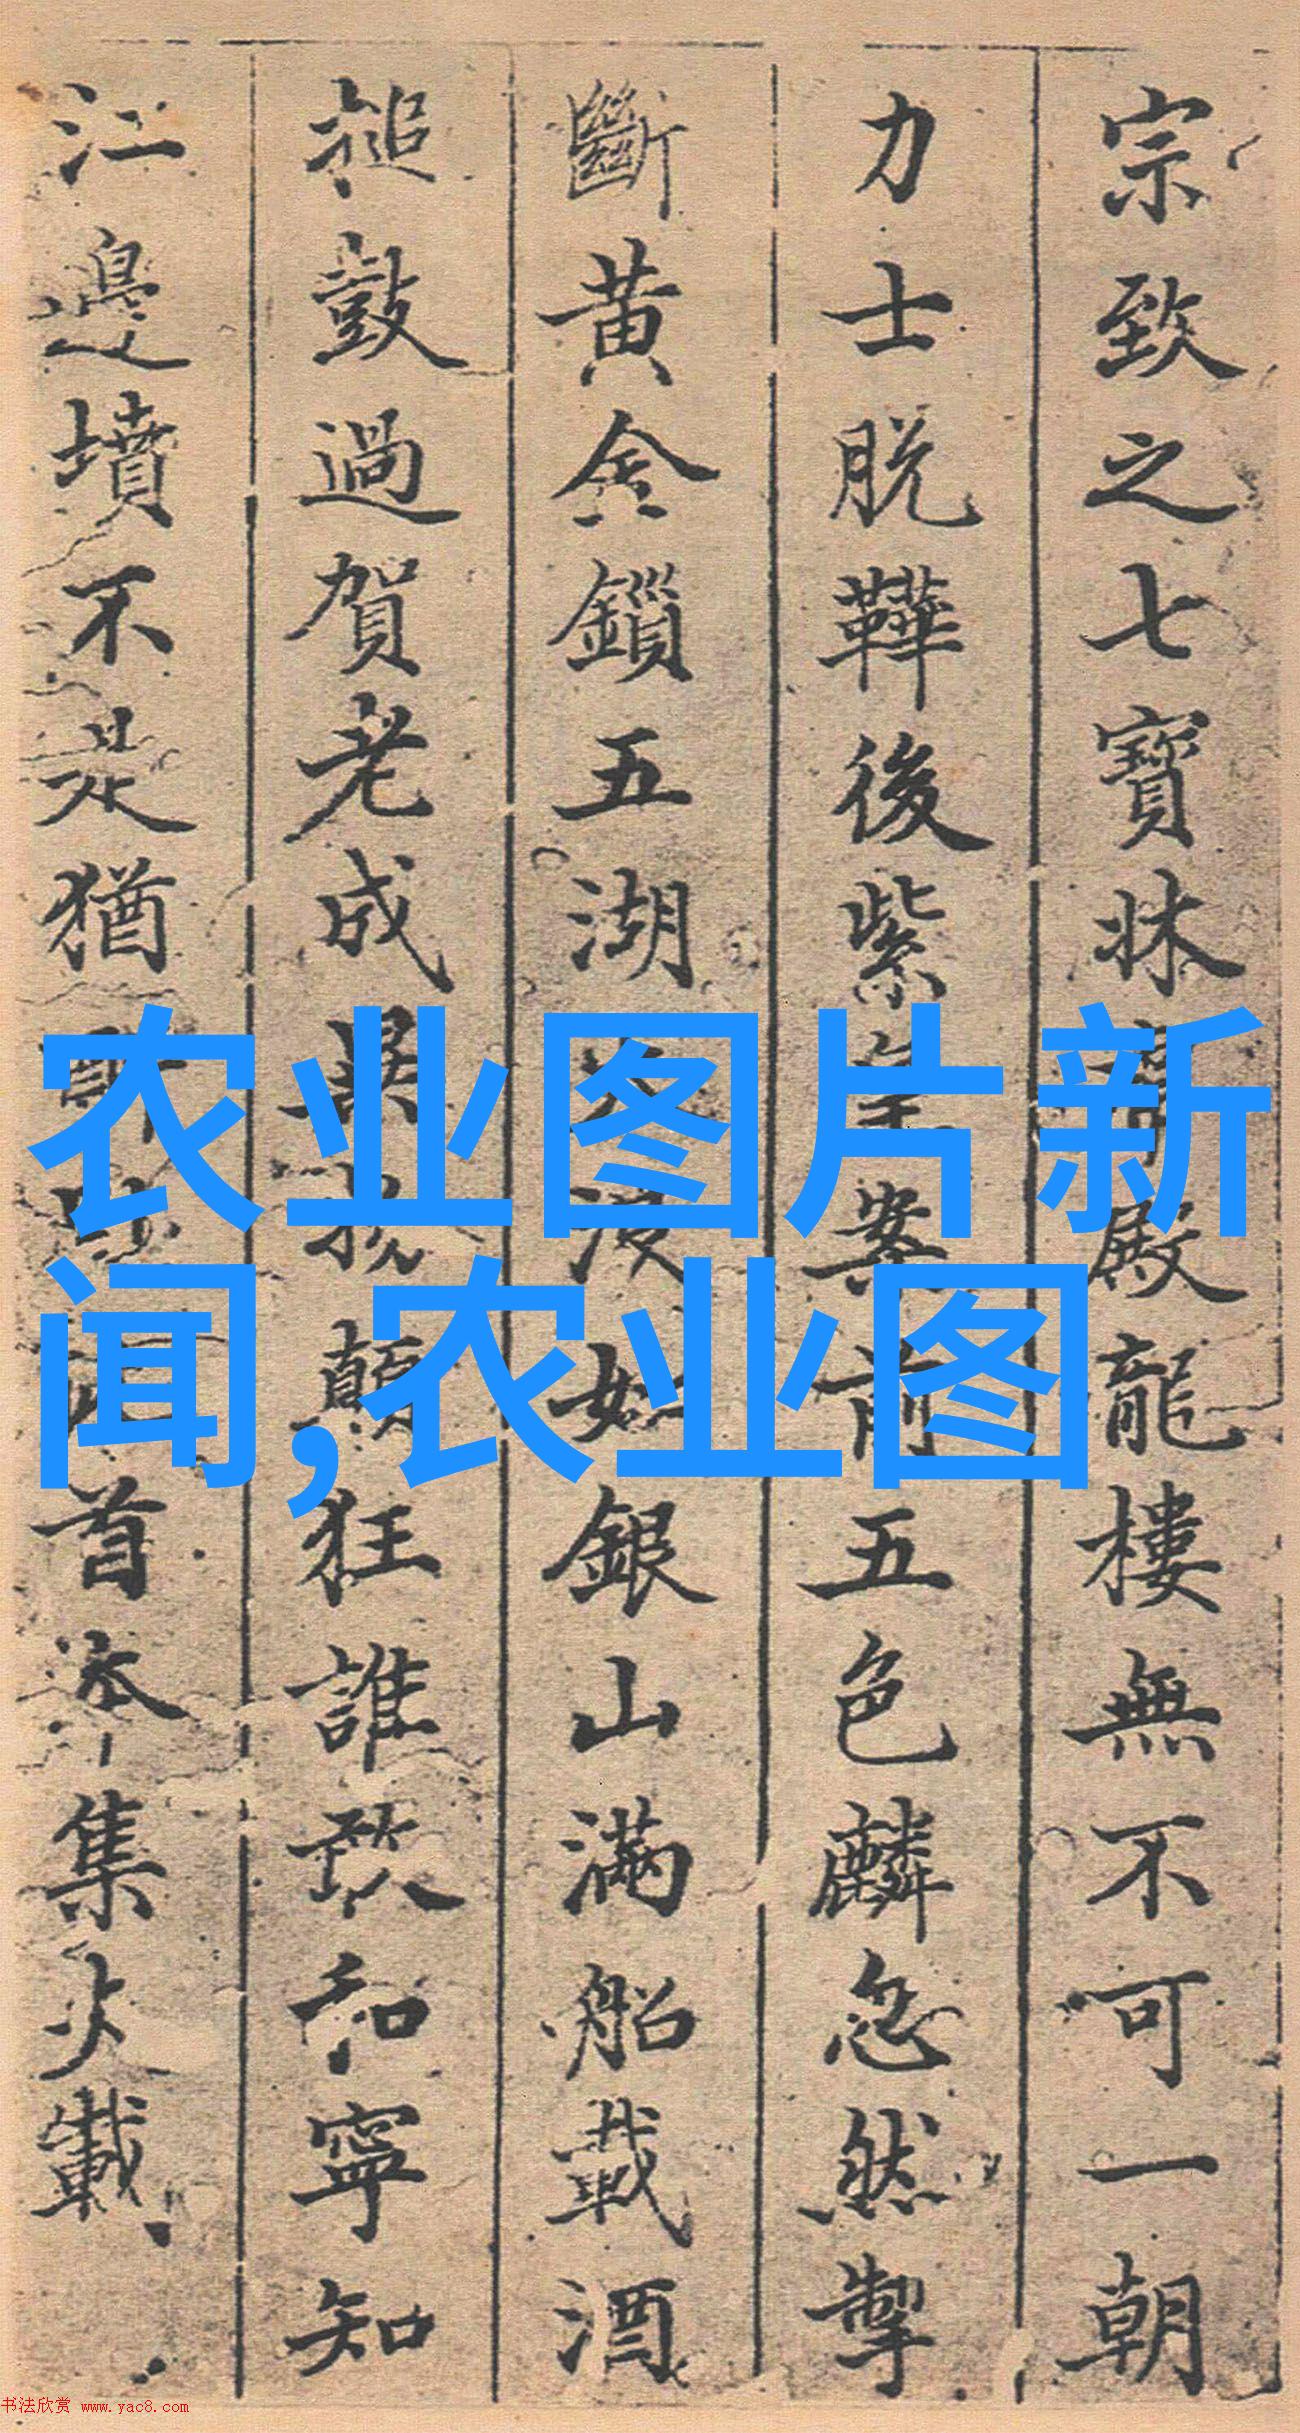 宗致之七寶牀殿龍樓無不可一朝
力士脫鞾後紫皇案前五色麟忽然掣
斷黃金鎖五湖大浪如銀山滿船載酒
搥鼓過賀老成異物顛狂誰敢和寧知
江邊墳不是猶醉臥首本集載
农业图片新
闻,农业图
书法欣赏 www.yac8.com